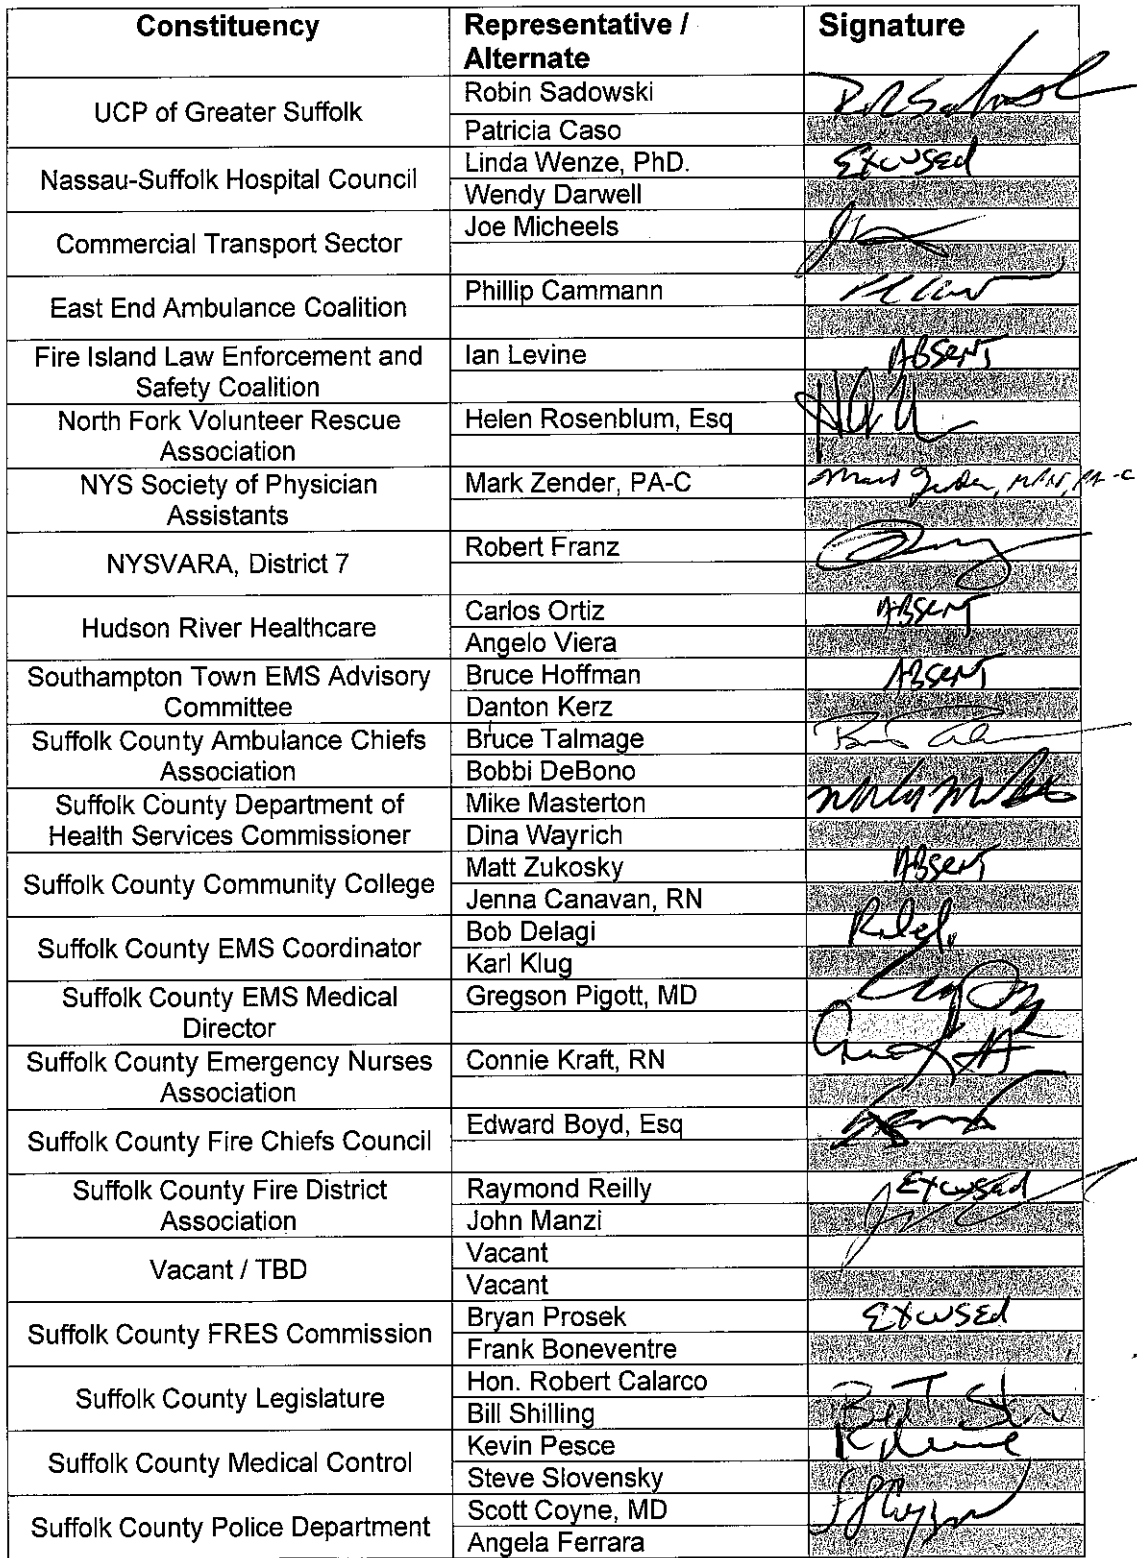 Constituency Representative / Signature
Alternate
UCP of Greater Suffolk
Robin Sadowski
Patricia Caso
Nassau-Suffolk Hospital Council
Linda Wenze, PhD. Excused
Wendy Darwell
Commercial Transport Sector
Joe Micheels
East End Ambulance Coalition
Phillip Cammann
Fire Island Law Enforcement and
Safety Coalition
Ian Levine Absent
North Fork Volunteer Rescue
Association
Helen Rosenblum, Esq
NYS Society of Physician
Assistants
Mark Zender, PA-C
NYSVARA, District 7
Robert Franz
Hudson River Healthcare
Carlos Ortiz Absent
Angelo Viera
Southampton Town EMS Advisory
Committee
Bruce Hoffman Absent
Danton Kerz
Suffolk County Ambulance Chiefs
Association
Bruce Talmage
Bobbi DeBono
Suffolk County Department of
Health Services Commissioner
Mike Masterton
Dina Wayrich
Suffolk County Community College
Matt Zukosky Absent
Jenna Canavan, RN
Suffolk County EMS Coordinator
Bob Delagi
Karl Klug
Suffolk County EMS Medical
Director
Gregson Pigott, MD
Suffolk County Emergency Nurses
Association
Connie Kraft, RN
Suffolk County Fire Chiefs Council
Edward Boyd, Esq
Suffolk County Fire District
Association
Raymond Reilly Excused
John Manzi
Vacant / TBD
Vacant
Vacant
Suffolk County FRES Commission
Bryan Prosek Excused
Frank Boneventre
Suffolk County Legislature
Hon. Robert Calarco
Bill Shilling
Suffolk County Medical Control
Kevin Pesce
Steve Slovensky
Suffolk County Police Department
Scott Coyne, MD
Angela Ferrara